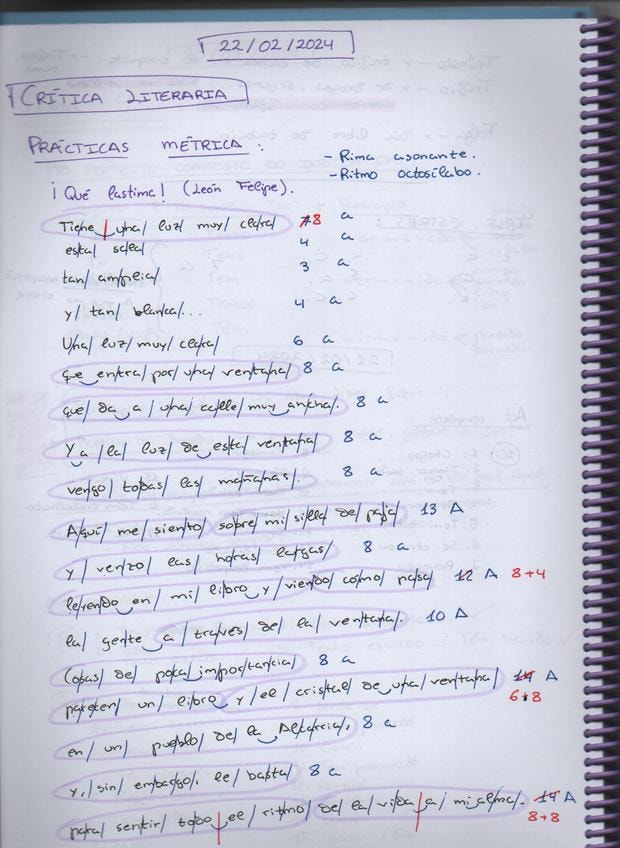 22/02/2024
CRÍTICA LITERARIA
PRÁCTICAS MÉTRICA:
- Rima asonante.
- Ritmo octosílabo.
¡Qué lástima! (León Felipe).
Tiene | una/ luz/ muy/ clara 8 a
esta/ sala/ 4 a
tan/ amplia/ 3 a
y/ tan/ blanca/... 4 a
Una/ luz/ muy/ clara/ 6 a
que entra/ por/ una/ ventana/ 8 a
que/ da a/ una/ calle/ muy ancha/. 8 a
Y a/ la/ luz/ de esta/ ventana/ 8 a
vengo/ todas/ las/ mañanas/. 8 a
Aquí/ me/ siento/ sobre/ mi/ silla/ de/ paja/ 13 A
y/ venzo/ las/ horas/ largas/ 8 a
leyendo en/ mi/ libro/ y/ viendo/ cómo/ pasa/ 12 A 8+4
la/ gente/ a/ través/ de/ la/ ventana/. 10 A
Cosas/ de/ poca/ importancia/ 8 a
parecen/ un/ libro/ y/ el/ cristal/ de/ una/ ventana/ 14 A
6+8
en/ un/ pueblo/ de/ la/ Alcarria/, 8 a
y,/ sin/ embargo,/ le/ basta/ 8 a
para/ sentir/ todo/ el/ ritmo/ de/ la/ vida/ a/ mi/ alma/. 14 A
8+8